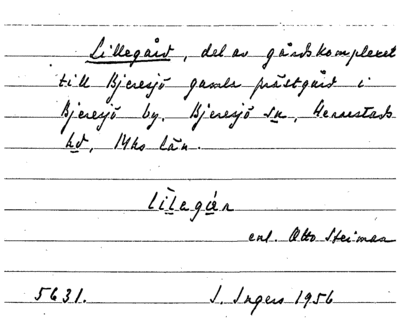 Lillegård, del av gårdskomplexet
till Bjeresjö gamla prästgård i
Bjeresjö by, Bjeresjö sn, Herrestads
hd, Mhs län.
enl. Otto Steiman
5631. I. Ingers 1956